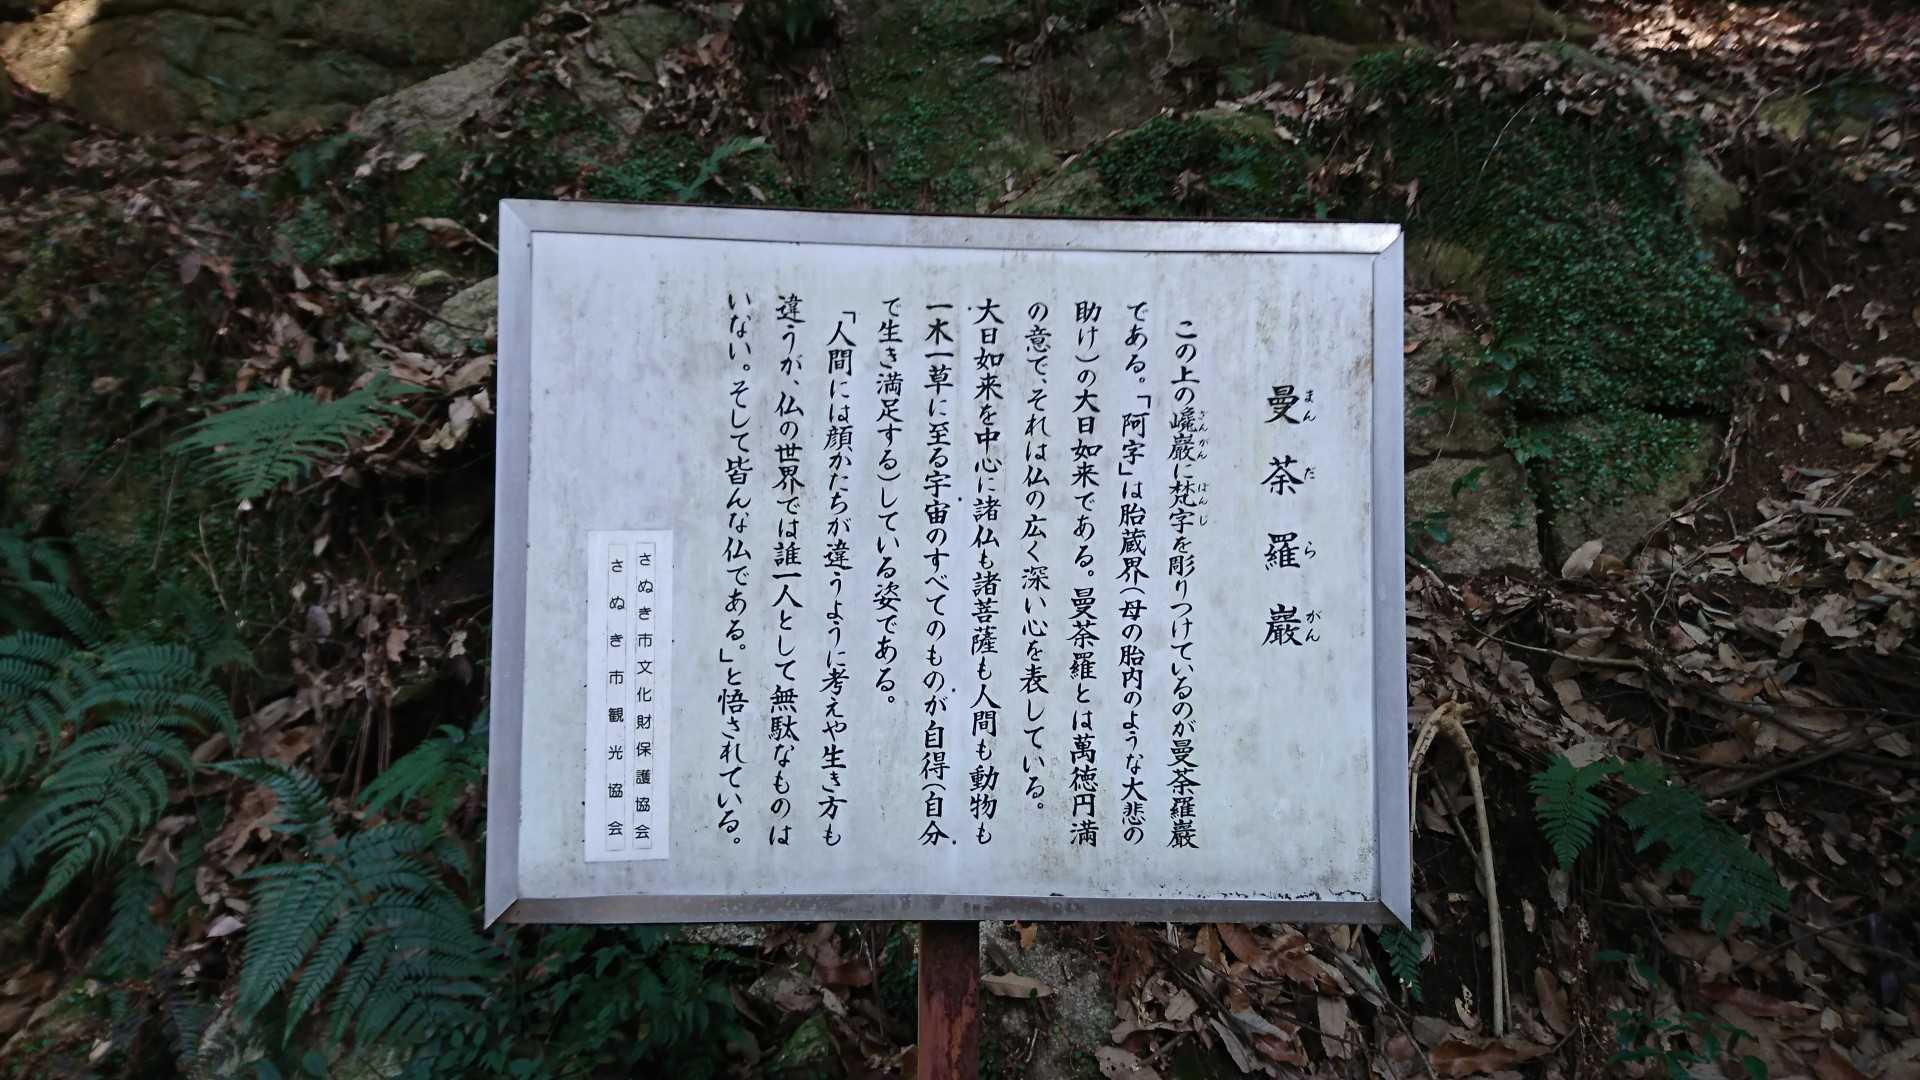 曼荼羅巖
まんだらがん
この上の巉巖に梵字を彫りつけているのが曼荼羅巖
ざんがん
ぼんじ
である。「阿字」は胎蔵界(母の胎内のような大悲の
助け)の大日如来である。曼荼羅とは萬徳円満
の意で、それは仏の広く深い心を表している。
大日如来を中心に諸仏も諸菩薩も人間も動物も
一木一草に至る宇宙のすべてのものが自得(自分
で生き満足する)している姿である。
「人間には顔かたちが違うように考えや生き方も
違うが、仏の世界では誰一人として無駄なものは
いない。そして皆んな仏である。」と悟されている。
さぬき市文化財保護協会
さぬき市観光協会